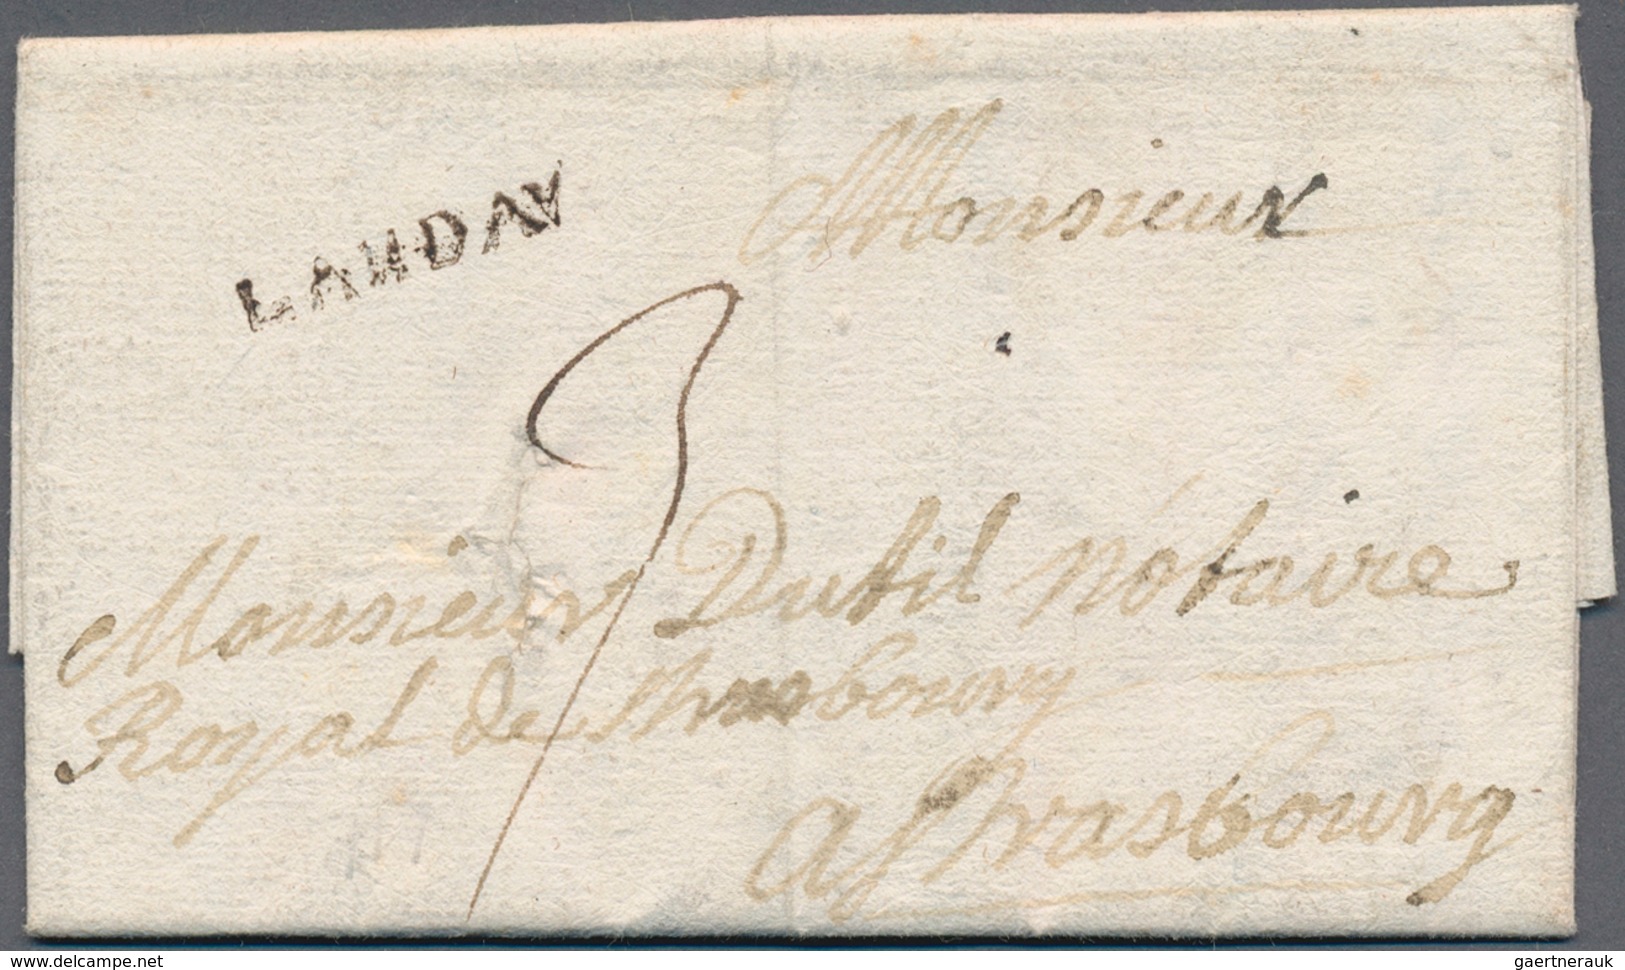 Monsieur
LANDAV
Monsieur Dutil Notaire
Royal de Strasbourg
a Strasbourg
www.delcampe.net
gaertnerauk